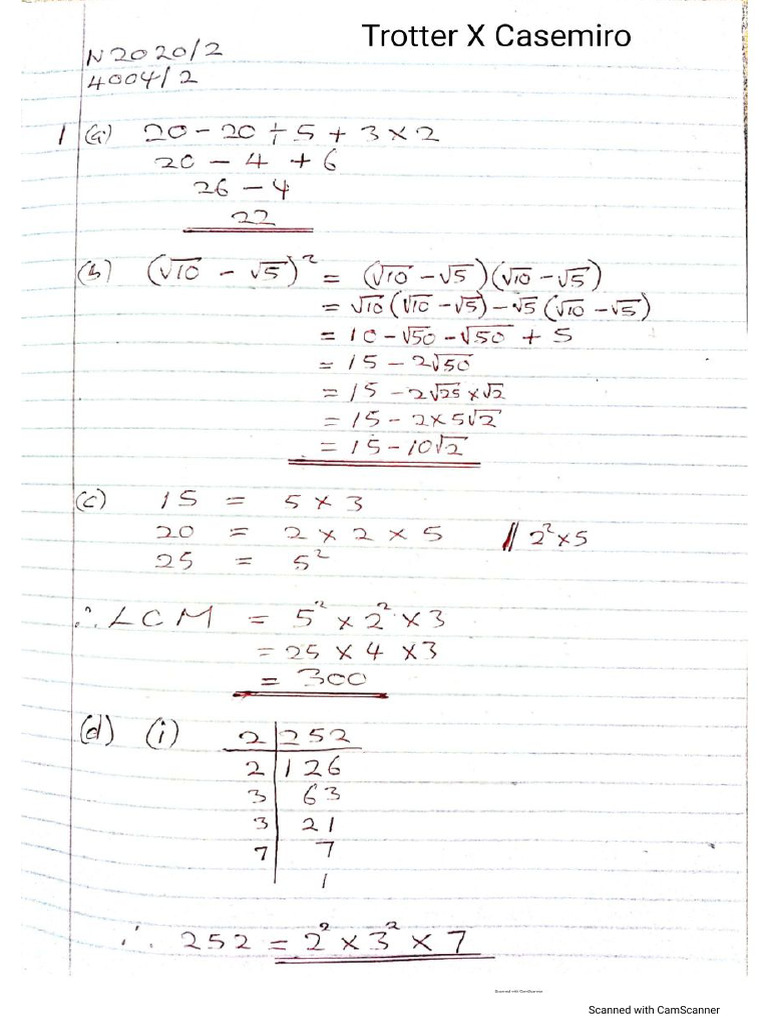 Trotter X Casemiro
N2020/2
4004/2
1 (a) 20 - 20 ÷ 5 + 3 × 2
20 - 4 + 6
26 - 4
22
(b) (√10 - √5)² = (√10 - √5)(√10 - √5)
= √10(√10 - √5) - √5(√10 - √5)
= 10 - √50 - √50 + 5
= 15 - 2√50
= 15 - 2√25 × √2
= 15 - 2 × 5√2
= 15 - 10√2
(c) 15 = 5 × 3
20 = 2 × 2 × 5 // 2² × 5
25 = 5²
∴ LCM = 5² × 2² × 3
= 25 × 4 × 3
= 300
(d) (i) 2 | 252
2 | 126
3 | 63
3 | 21
7 | 7
1
∴ 252 = 2² × 3² × 7
Scanned with CamScanner
Scanned with CamScanner